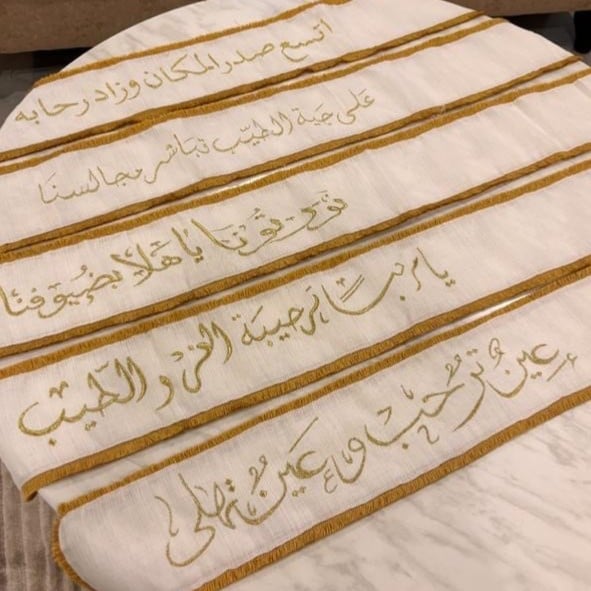 اتسع صدر المكان وزاد رحابه
على جية الطيّب تباشر مجالسنا
نورتونا يا هلا بضيوفنا
يا مرحبًا ترحيبة الغز والطيب
عين ترحب وعين تهلي